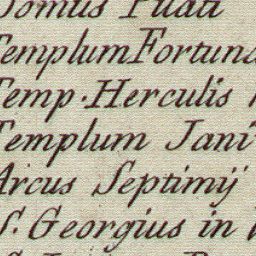 Domus Pilati
Templum Fortuna
Temp. Herculis
Templum Jani
Arcus Septimij
S. Georgius in